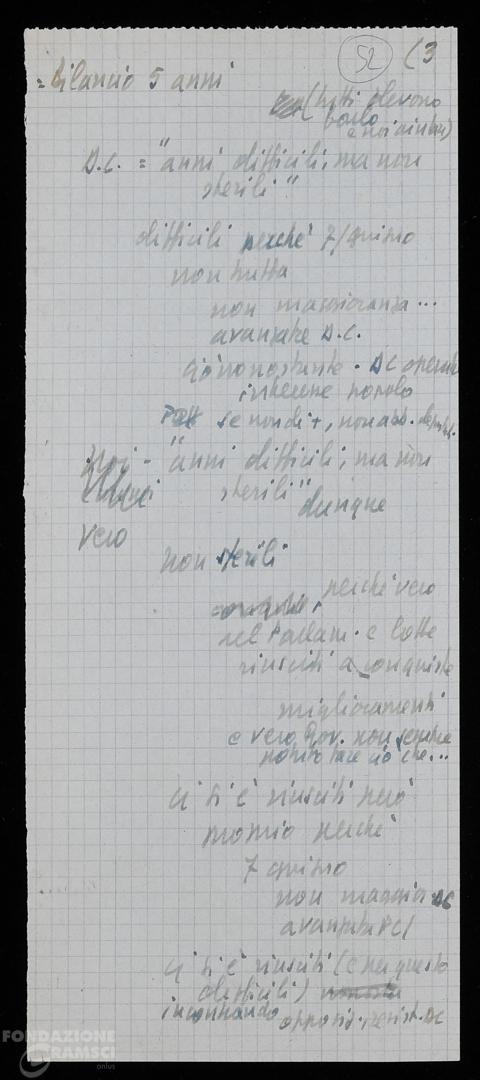 52 (3
= Bilancio 5 anni
(tutti devono
farlo
e noi aiutar)
D.C. = "anni difficili, ma non
sterili"
difficili perché 7 giugno
non truffa
non maggioranza...
avanzate D.C.
Ciononostante . DC operato
interesse popolo
se non di +,
noi - "anni difficili, ma non
sterili" dunque
vero
non sterili
perché vero
nel Parlam. e lotte
riusciti a conquiste
miglioramenti
e vero Gov. non sempre
potuto fare ciò che...
ci si è riusciti però
proprio perché
7 giugno
non maggior DC
avanzata PCI
ci si è riusciti (e per questo
difficili)
opposiz. resist. DC
FONDAZIONE
GRAMSCI
onlus